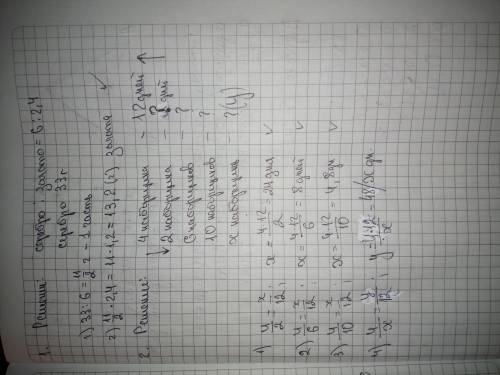 1. Решение: серебро : золото = 6 : 2,4
серебро 33 г
1) 33 : 6 = 11/2 г - 1 часть
2) 11/2 · 2,4 = 11 · 1,2 = 13,2 (г) золота ✓
2. Решение: 4 наборщика - 12 дней ↑
↓ 2 наборщика - ? дней
6 наборщиков - ?
10 наборщиков - ?
x наборщика - ? (y)
1) 4/2 = x/12 ; x = 4·12/2 = 24 дня ✓
2) 4/6 = x/12 ; x = 4·12/6 = 8 дней ✓
3) 4/10 = x/12 ; x = 4·12/10 = 4,8 дн ✓
4) 4/x = y/12 ; y = 4·12/x = 48/x дн.